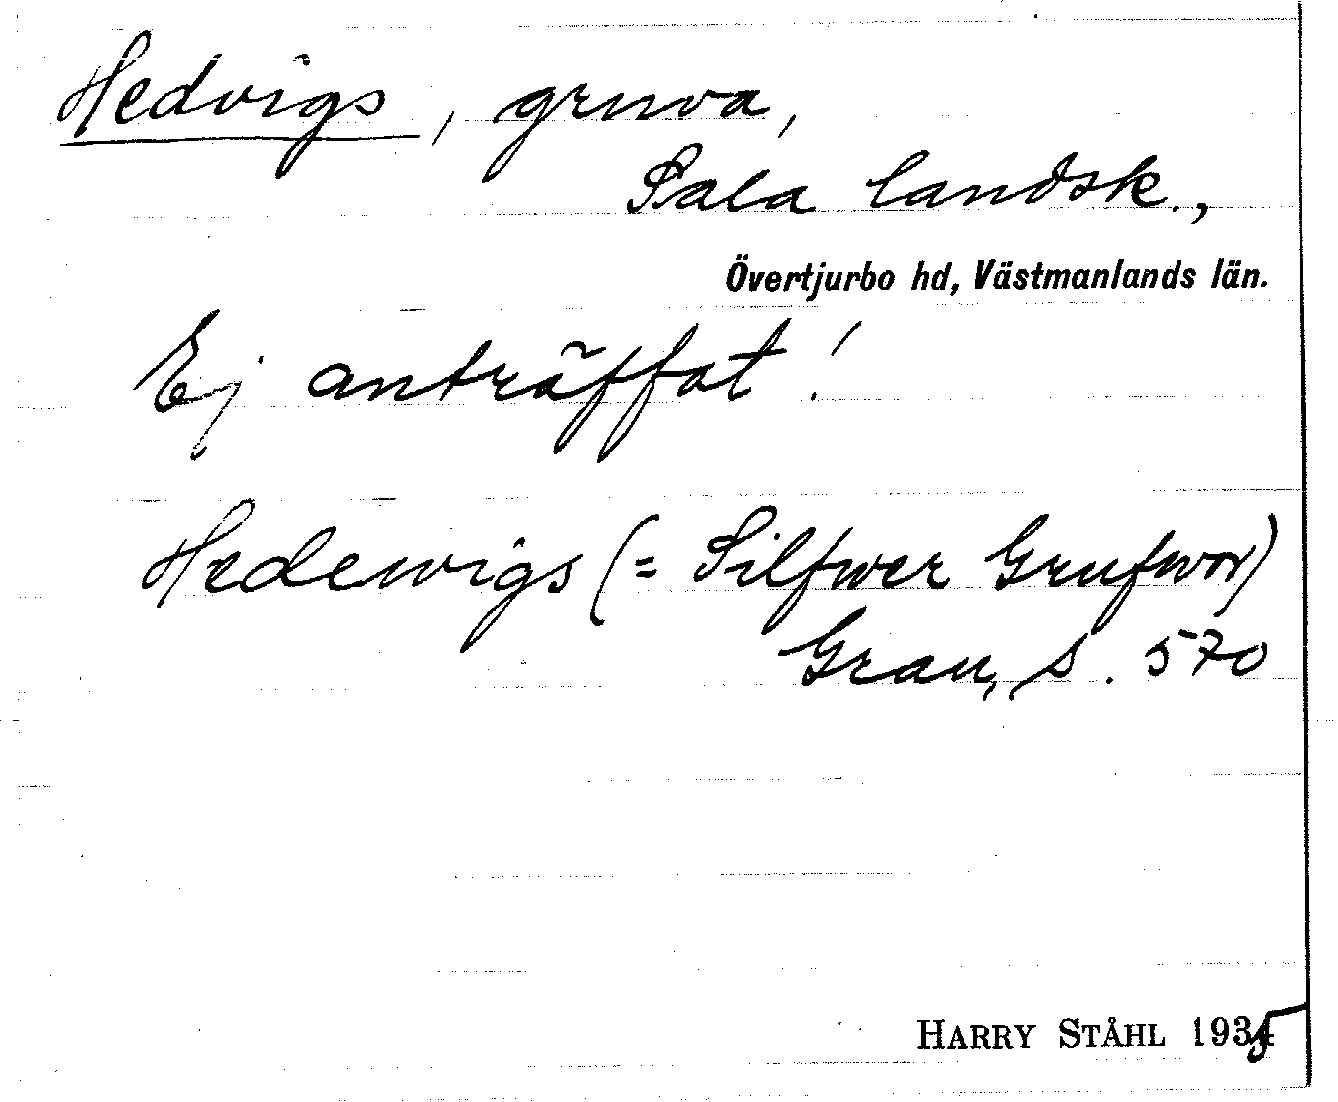 Hedvigs, gruva,
Sala landsk.,
Övertjurbo hd, Västmanlands län.
Ej anträffat!
Hedewigs (= Silfwer Grufwor)
Grau, s. 570
HARRY STÅHL 1935